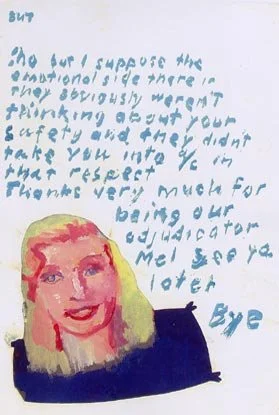 BUT
'No but I suppose the
emotional side there is
they obviously weren't
thinking about your
safety and they didn't
take you into % in
that respect
Thanks very much for
being our
adjudicator
Mel See ya
later
Bye